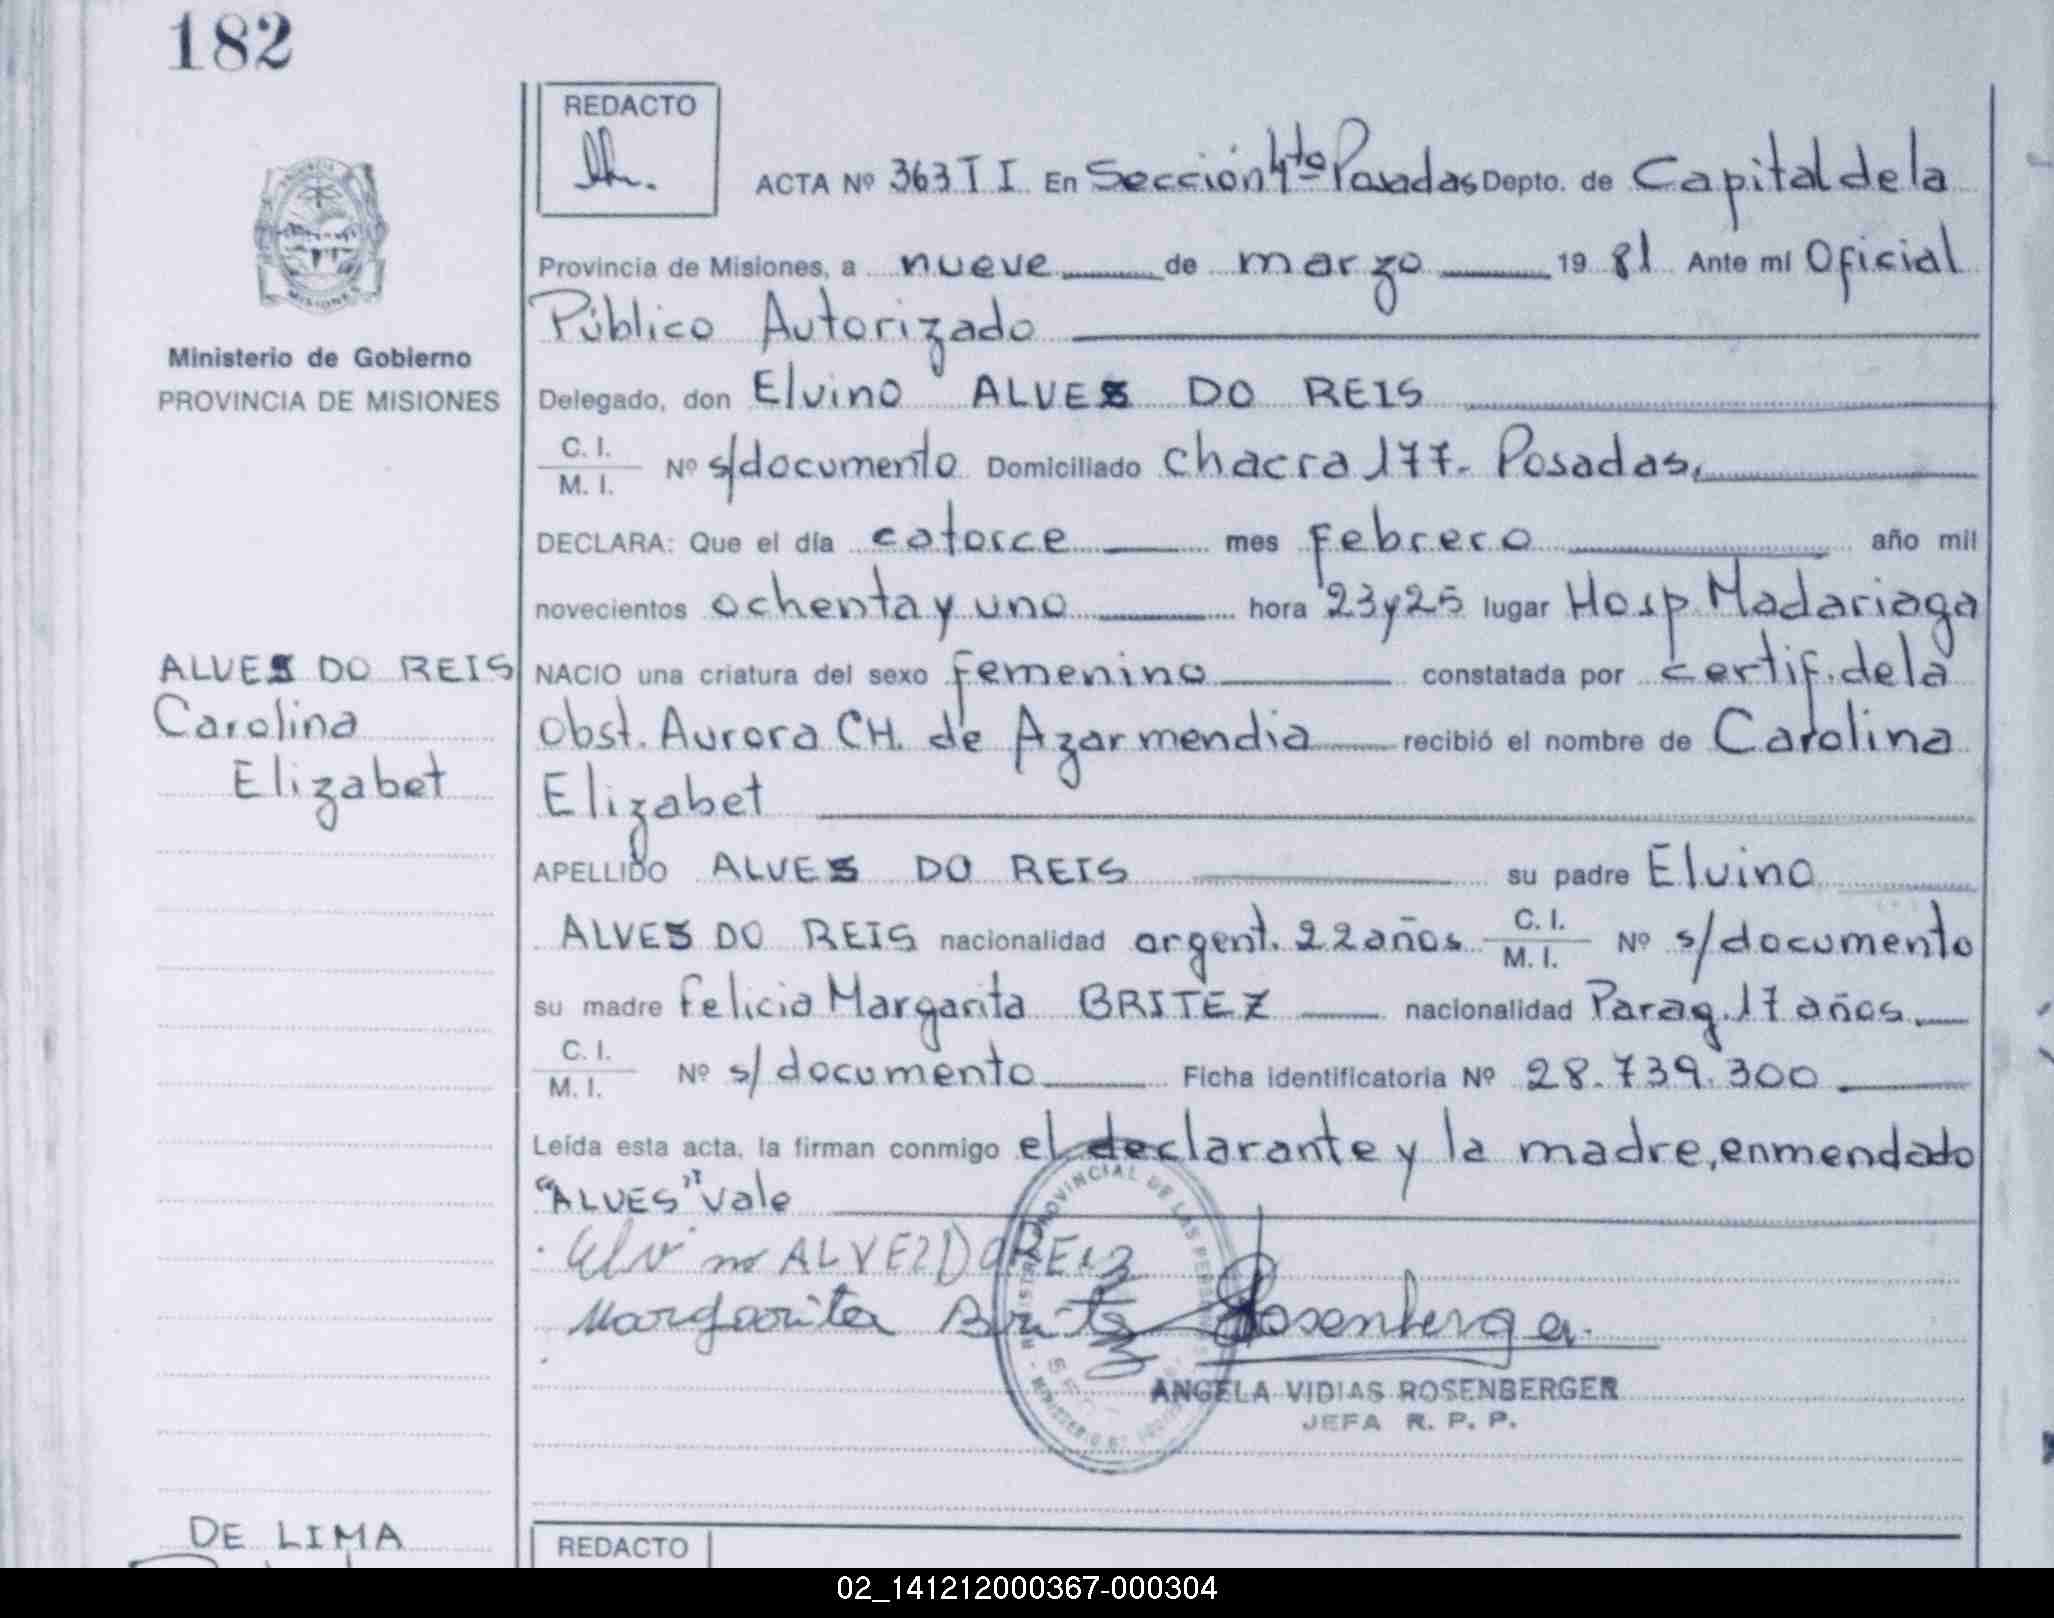 182
REDACTO
ACTA Nº 363 T I En Sección 4ta Posadas Depto. de Capital de la
Provincia de Misiones, a nueve de marzo 1981 Ante mi Oficial
Público Autorizado
Ministerio de Gobierno
PROVINCIA DE MISIONES
Delegado, don Elvino ALVES DO REIS
C. I.
M. I. Nº s/documento Domiciliado chacra 177- Posadas,
DECLARA: Que el día catorce mes Febrero año mil
novecientos ochenta y uno hora 23 y 25 lugar Hosp Madariaga
ALVES DO REIS
Carolina
Elizabet
NACIO una criatura del sexo femenino constatada por certif. de la
Obst. Aurora CH. de Azarmendia recibió el nombre de Carolina
Elizabet
APELLIDO ALVES DO REIS su padre Elvino
ALVES DO REIS nacionalidad argent. 22 años C. I.
M. I. Nº s/documento
su madre Felicia Margarita BRITEZ nacionalidad Parag. 17 años.
C. I.
M. I. Nº s/documento Ficha identificatoria Nº 28.739.300
Leída esta acta, la firman conmigo el declarante y la madre, enmendado
"ALVES" vale
Elvino ALVEZ DO REIZ
Margarita Britez Rosenberger
PROVINCIAL DE LAS
ANGELA VIDIAS ROSENBERGER
JEFA R. P. P.
DE LIMA
REDACTO
02_141212000367-000304